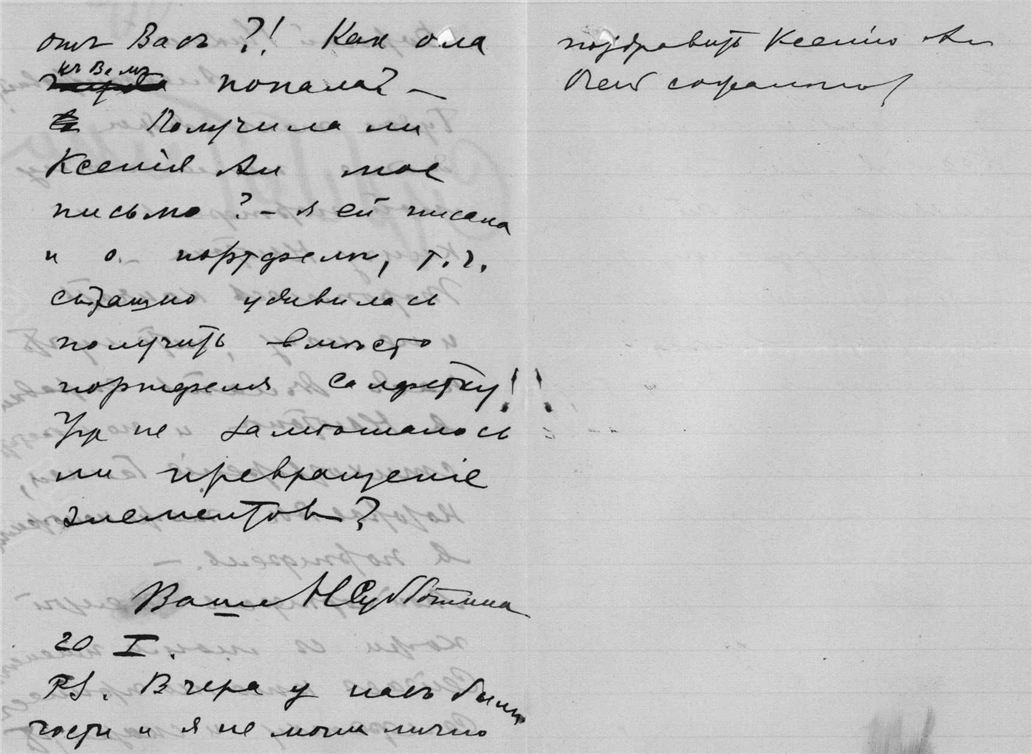 отъ Васъ?! Какъ она
къ Вамъ попала? —
Получила ли
Ксенія Ал мое
письмо? — я ей писала
и о портфели, т.ч.
страшно удивилась
получить вмѣсто
портфеля салфетку!!
Ужъ не замѣшалось
ли превращеніе
элементовъ?
Ваша НСубботина
20 I.
PS. Вчера у насъ были
гости и я не могла лично
поздравить Ксенію Ал